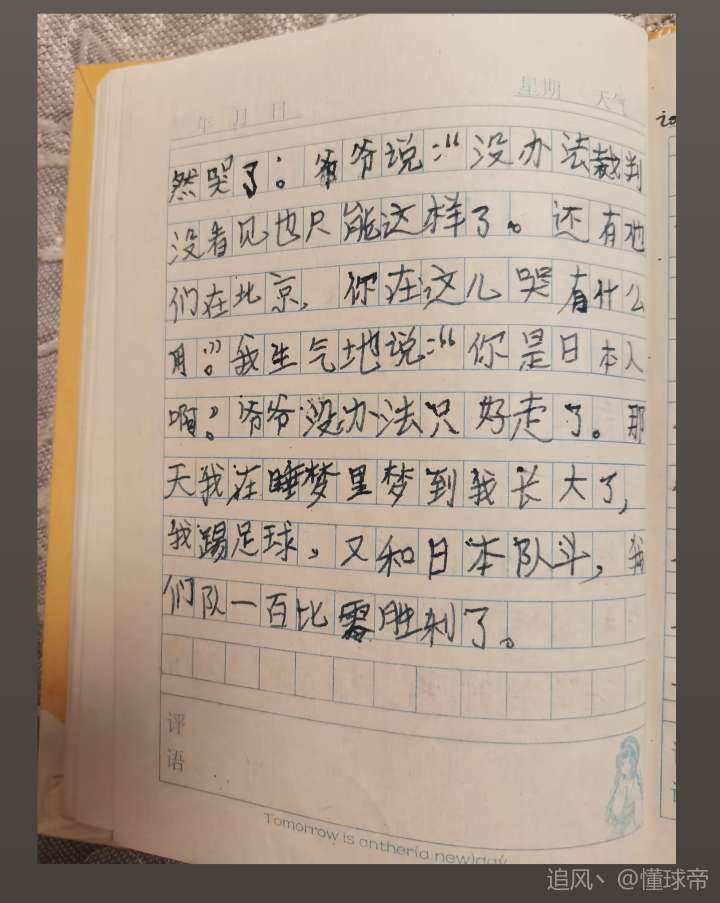 年 月 日 星期 天气
然哭了：爷爷说：“没办法裁判
没看见也只能这样了。还有他
们在北京，你在这儿哭有什么
用。”我生气地说：“你是日本人
啊？爷爷没办法只好走了。那
天我在睡梦里梦到我长大了，
我踢足球，又和日本队斗，我
们队一百比零胜利了。
评
语
Tomorrow is anther(a new)day
追风丶@懂球帝